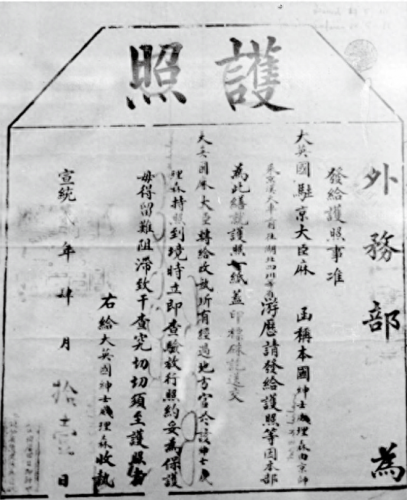 護照
外務部 為
發給護照事准
大英國駐京大臣麻 函稱本國紳士 理森由京師
游歷請發給護照等因本部
為此繕就護照一紙蓋印標硃送交
大英國麻大臣轉給收執所有經過地方官於該紳士
理森持照到境時立即查驗放行照約妥為保護
毋得留難阻滯致干查究切切須至護照者
右給大英國紳士 理森收執
宣統 年肆月拾 日